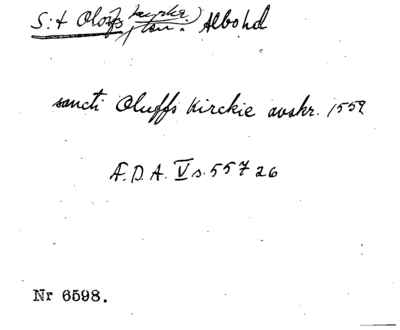 S:t Olofs kyrka) Albo hd
sancti Oluffs Kirckie avskr. 1559
Æ.D.A. V s. 557 26
Nr 6598.